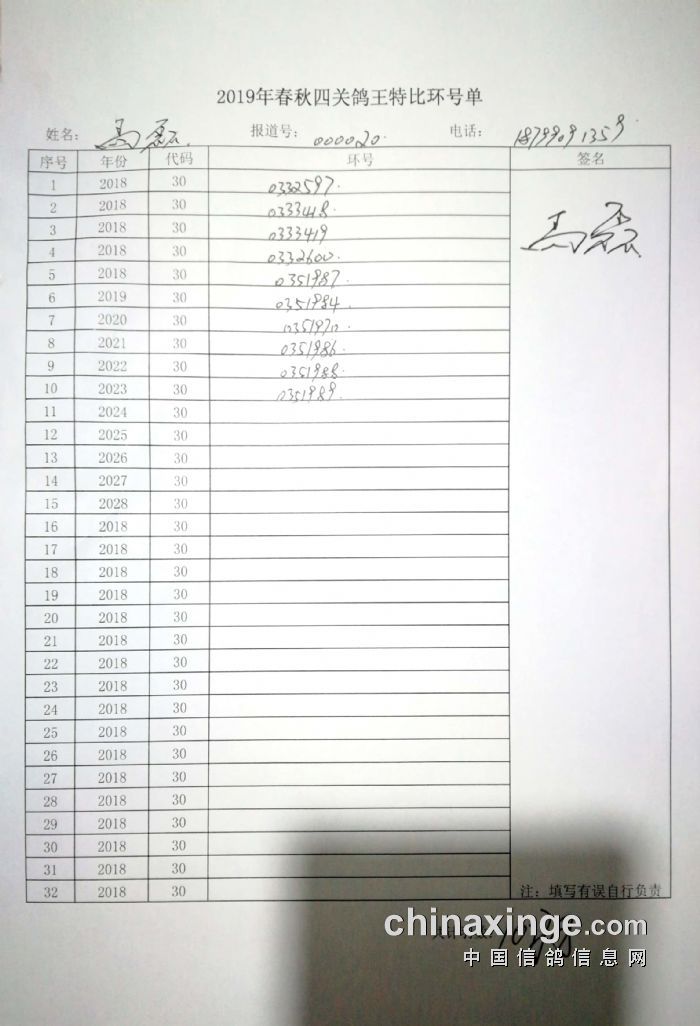 2019年春秋四关鸽王特比环号单
姓名: 马磊. 报道号: 000020. 电话: 18799091359
序号 年份 代码 环号 签名
1 2018 30 0332597.
2 2018 30 0333418.
3 2018 30 0333419
4 2018 30 0332600.
马磊
5 2018 30 0351987.
6 2019 30 0351984.
7 2020 30 0351970.
8 2021 30 0351986.
9 2022 30 0351988.
10 2023 30 0351989.
11 2024 30
12 2025 30
13 2026 30
14 2027 30
15 2028 30
16 2018 30
17 2018 30
18 2018 30
19 2018 30
20 2018 30
21 2018 30
22 2018 30
23 2018 30
24 2018 30
25 2018 30
26 2018 30
27 2018 30
28 2018 30
29 2018 30
30 2018 30
31 2018 30
32 2018 30 注: 填写有误自行负责
chinaxinge.com
中国信鸽信息网